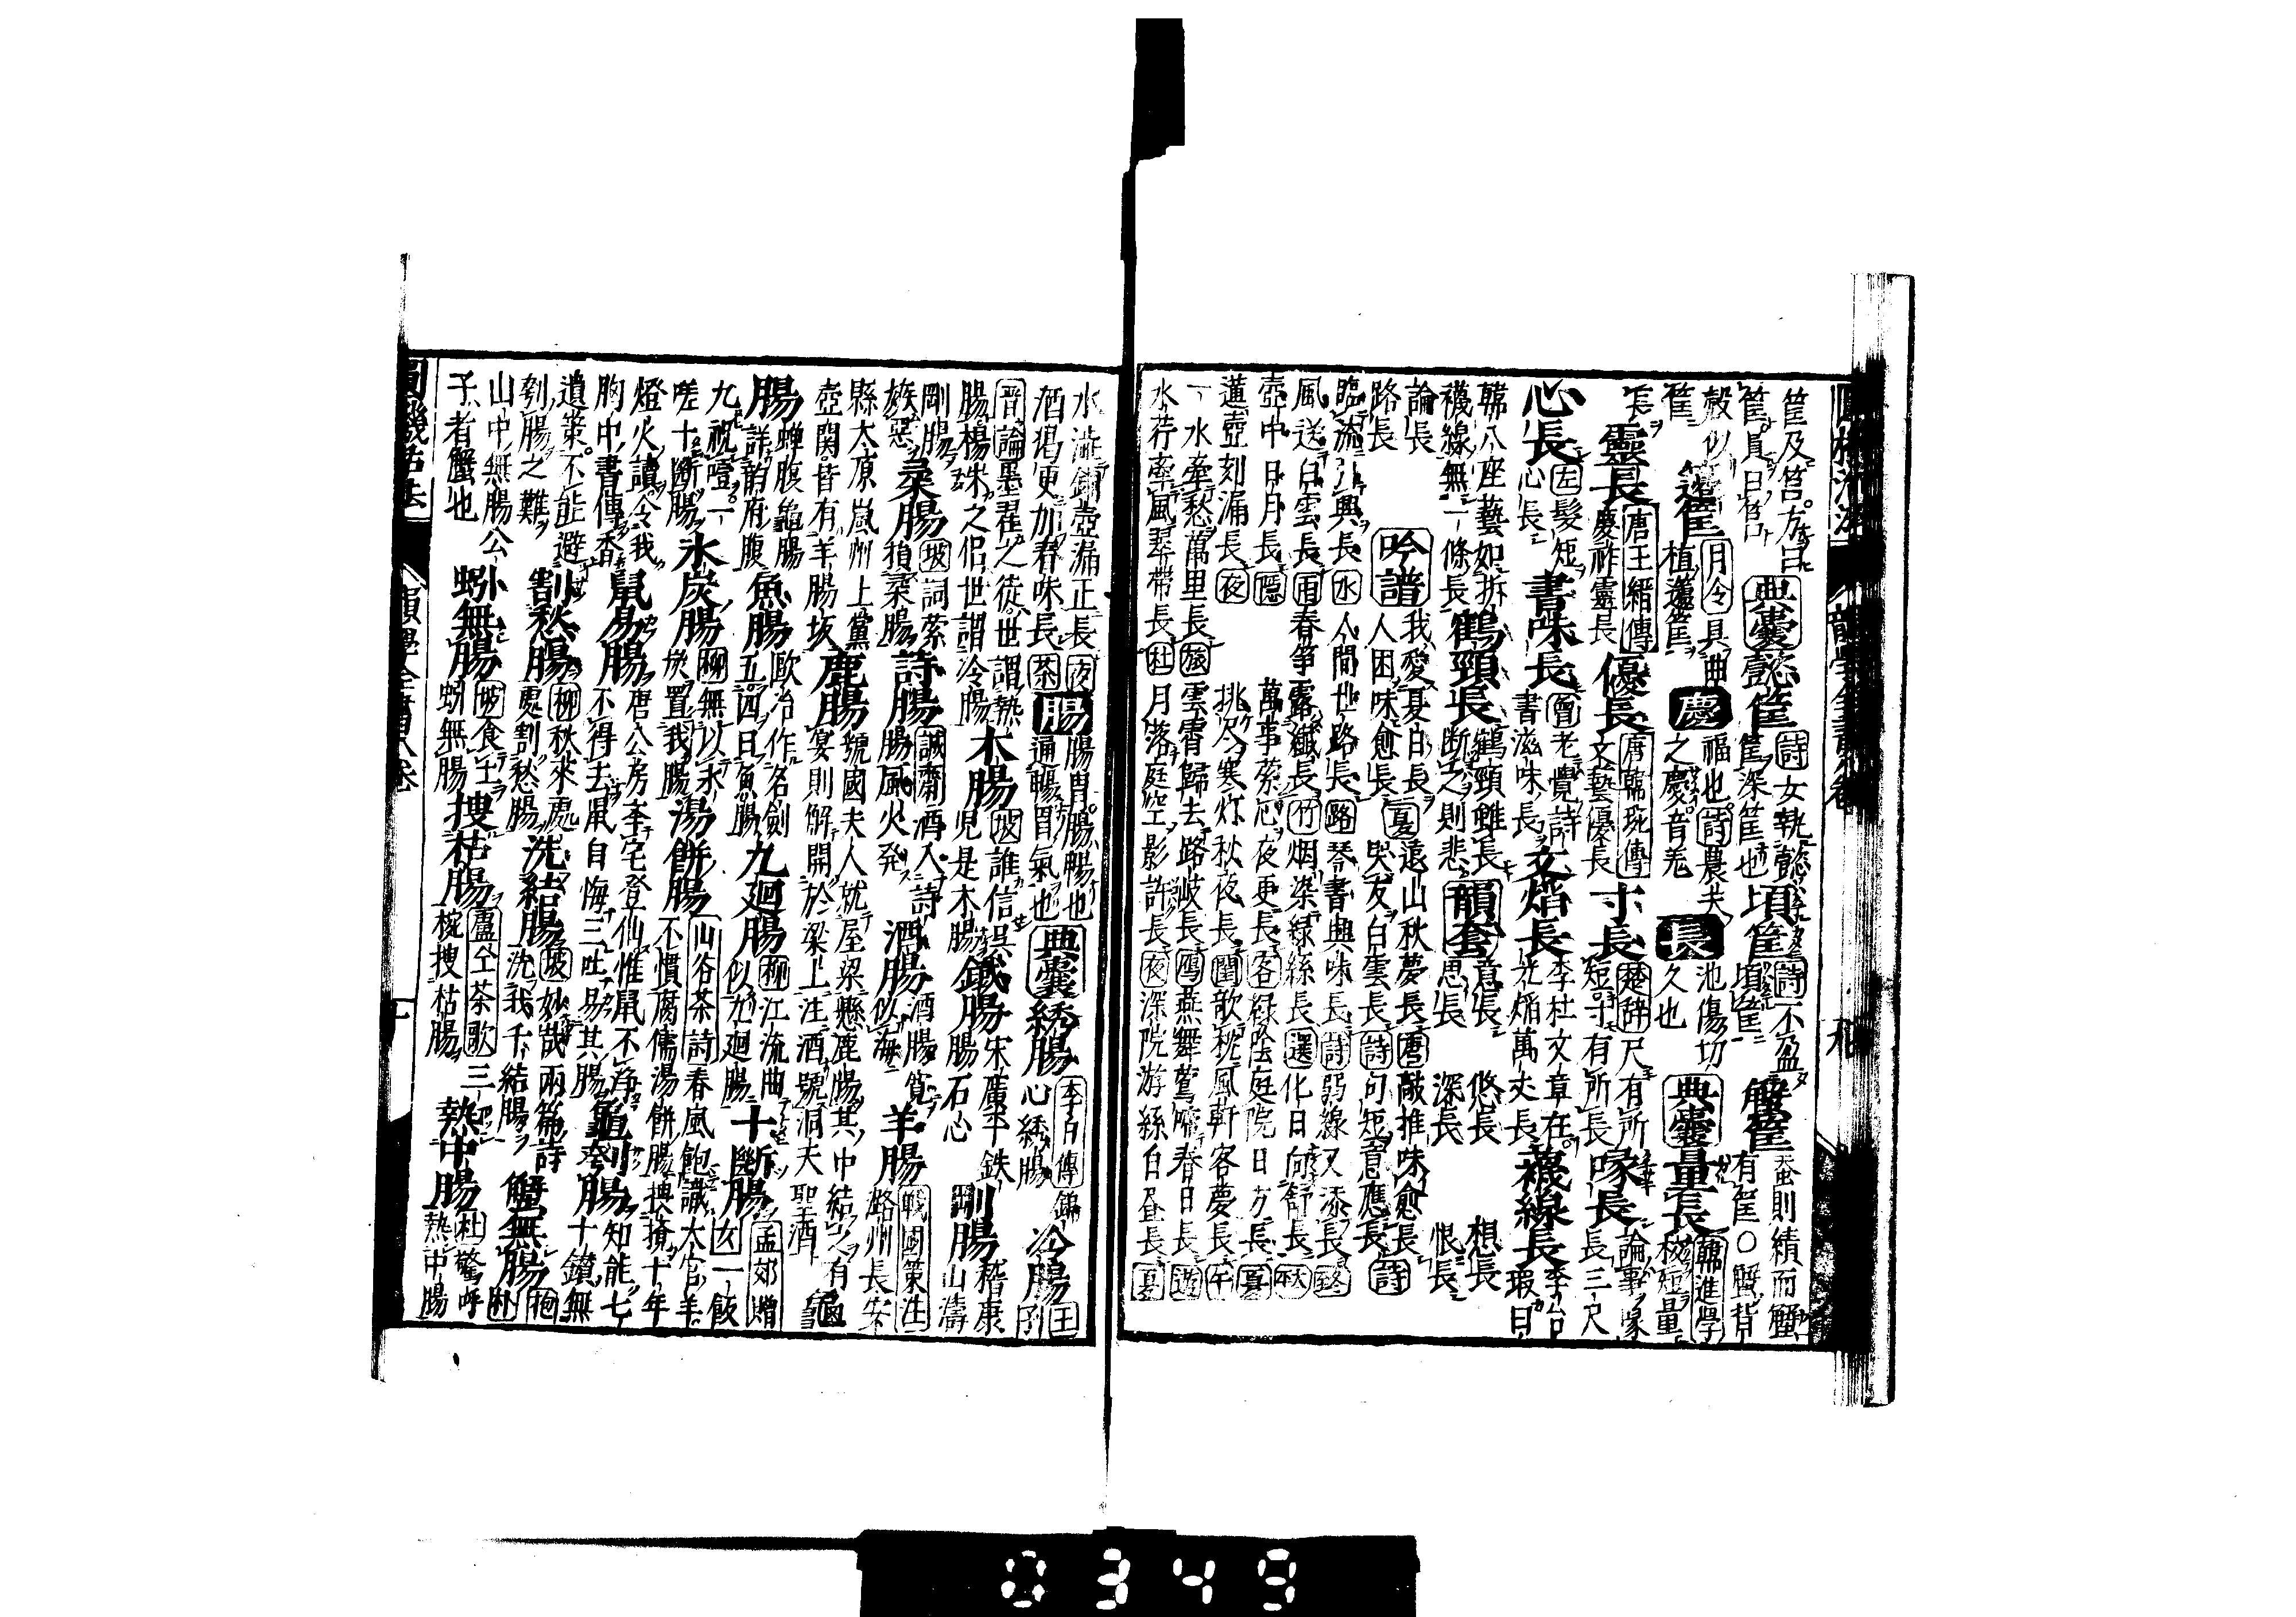 筐及筥方曰
筐員曰筥 典囊 懿筐 詩女執懿 筐深筐也 頃筐 詩不盈 頃筐 蟹筐 蚕則績而蟹
有筐○蟹背
殼似筐 籧筐 月令具曲 植籧筐 慶 福也詩農夫 之慶音羌 長 池傷切 久也 典囊 量長 韓進學 校短量
長 靈長 唐王縉傳 慶祚靈長 優長 唐韓琬傳 文藝優長 寸長 楚辞尺有所 短寸有所長 喙長 論事喙 長三尺
心長 左髮短 心長 書味長 老覺詩 書滋味長 文焰長 李杜文章在 光焔萬丈長 襪線長 李台 瑕曰
韓八座藝如拆
襪線無一條長 鶴頸長 鶴頸雖長 断之則悲 韻套 意長 思長 悠長 深長 想長 恨長
論長
路長 吟譜 我愛夏日長 人困味愈長 夏遠山秋夢長 哭友白雲長 唐敲推味愈長 詩句短意應長 詩
臨流引興長 水人間世路長 路琴書興味長 詩弱線又添長
風送白雲長 雨春笋露纖長 竹烟染緑絲長 選化日向舒長
壺中日月長 隱 萬事縈心夜更長 客緑陰庭院日方長 夏
蓮壺刻漏長 夜 挑尺寒灯秋夜長 閨歌枕風軒客夢長 午
一水牽愁萬里長 旅雲霄歸去路岐長 燕舞鶯啼春日長 遊
水荇牽風翠帯長 杜月落庭空影許長 夜深院游絲白昼長 夏
水滸銅壺漏正長 夜
酒渇更加春味長 茶 腸 腸胃腸暢也 通暢胃氣也 典囊 綉腸 李白傳錦 心綉腸 冷腸 王
晋論墨翟之徒世謂熱
腸楊朱之侶世謂冷腸 木腸 坡誰信呉 児是木腸 鐵腸 宋廣平鉄 腸石心 剛腸 嵆康 山濤
剛腸
嫉惡 枽腸 坡詞縈 損枽腸 詩腸 誠齋酒入詩 腸風火発 酒腸 酒腸寛 似海 羊腸 戰國策注 路州長安
縣太原嵐州上黨
壺関皆有羊腸坂 鹿腸 虢國夫人就屋梁懸鹿腸其中結之有 宴則解開於梁上注酒號洞天聖酒 龜
腸 蝉腹龜腸 詳韵府腹 魚腸 歐冶作名劍 五四曰魚腸 九廻腸 柳江流曲 似九廻腸 十斷腸 孟郊贈 一飯
九祝噎一
嗟十断腸 氷炭腸 柳無以氷 炭置我腸 湯餅腸 山谷茶詩春風飽識太官羊 不慣腐儒湯餅腸搜攪十年
燈火讀令我
胸中書傳香 鼠易腸 唐公房李宅登仙惟鼠不淨 不得去鼠自悔三吐易其腸 龜刳腸 知能七 十鑚無
遺策不能避
刳腸之難 割愁腸 柳秋來處 處割愁腸 洗結腸 坡妙哉兩篇詩 洗我千結腸 蟹無腸 抱 朴
山中無腸公
子者蟹也 蚓無腸 坡食土 蚓無腸 搜枯腸 盧仝茶歌三 椀搜枯腸 熱中腸 杜驚呼 熱中腸
0349